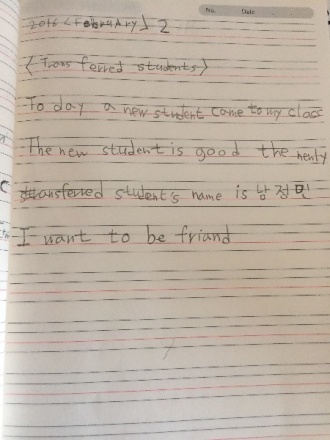 No. Date
2016 <February> 2
<Trans ferred students>
To day a new student come to my class
The new student is good the newly
transferred student's name is 남정민
I want to be friand